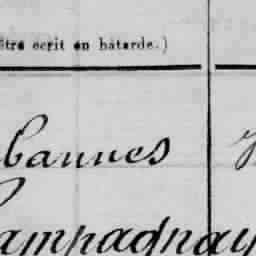 être ecrit en bâtarde.)
bannes
ampagnay